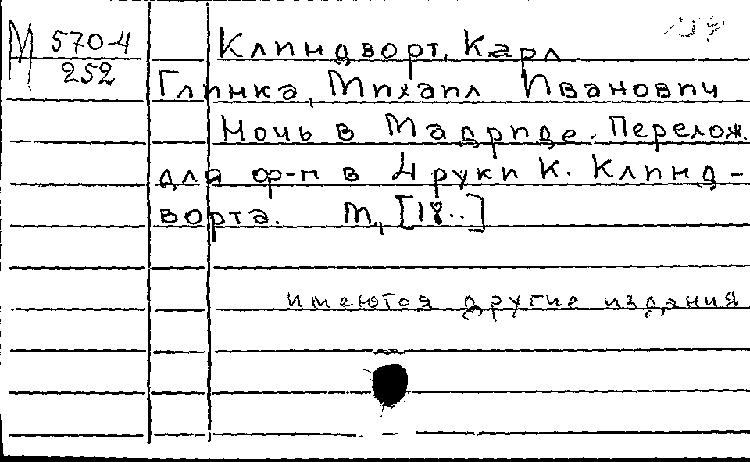 М 570-4
252
Клиндворт, Карл
Глинка, Михаил Иванович
Ночь в Мадриде. Перелож.
для ф-п в 4 руки К. Клинд-
ворта. М., [18..]
имеются другие издания